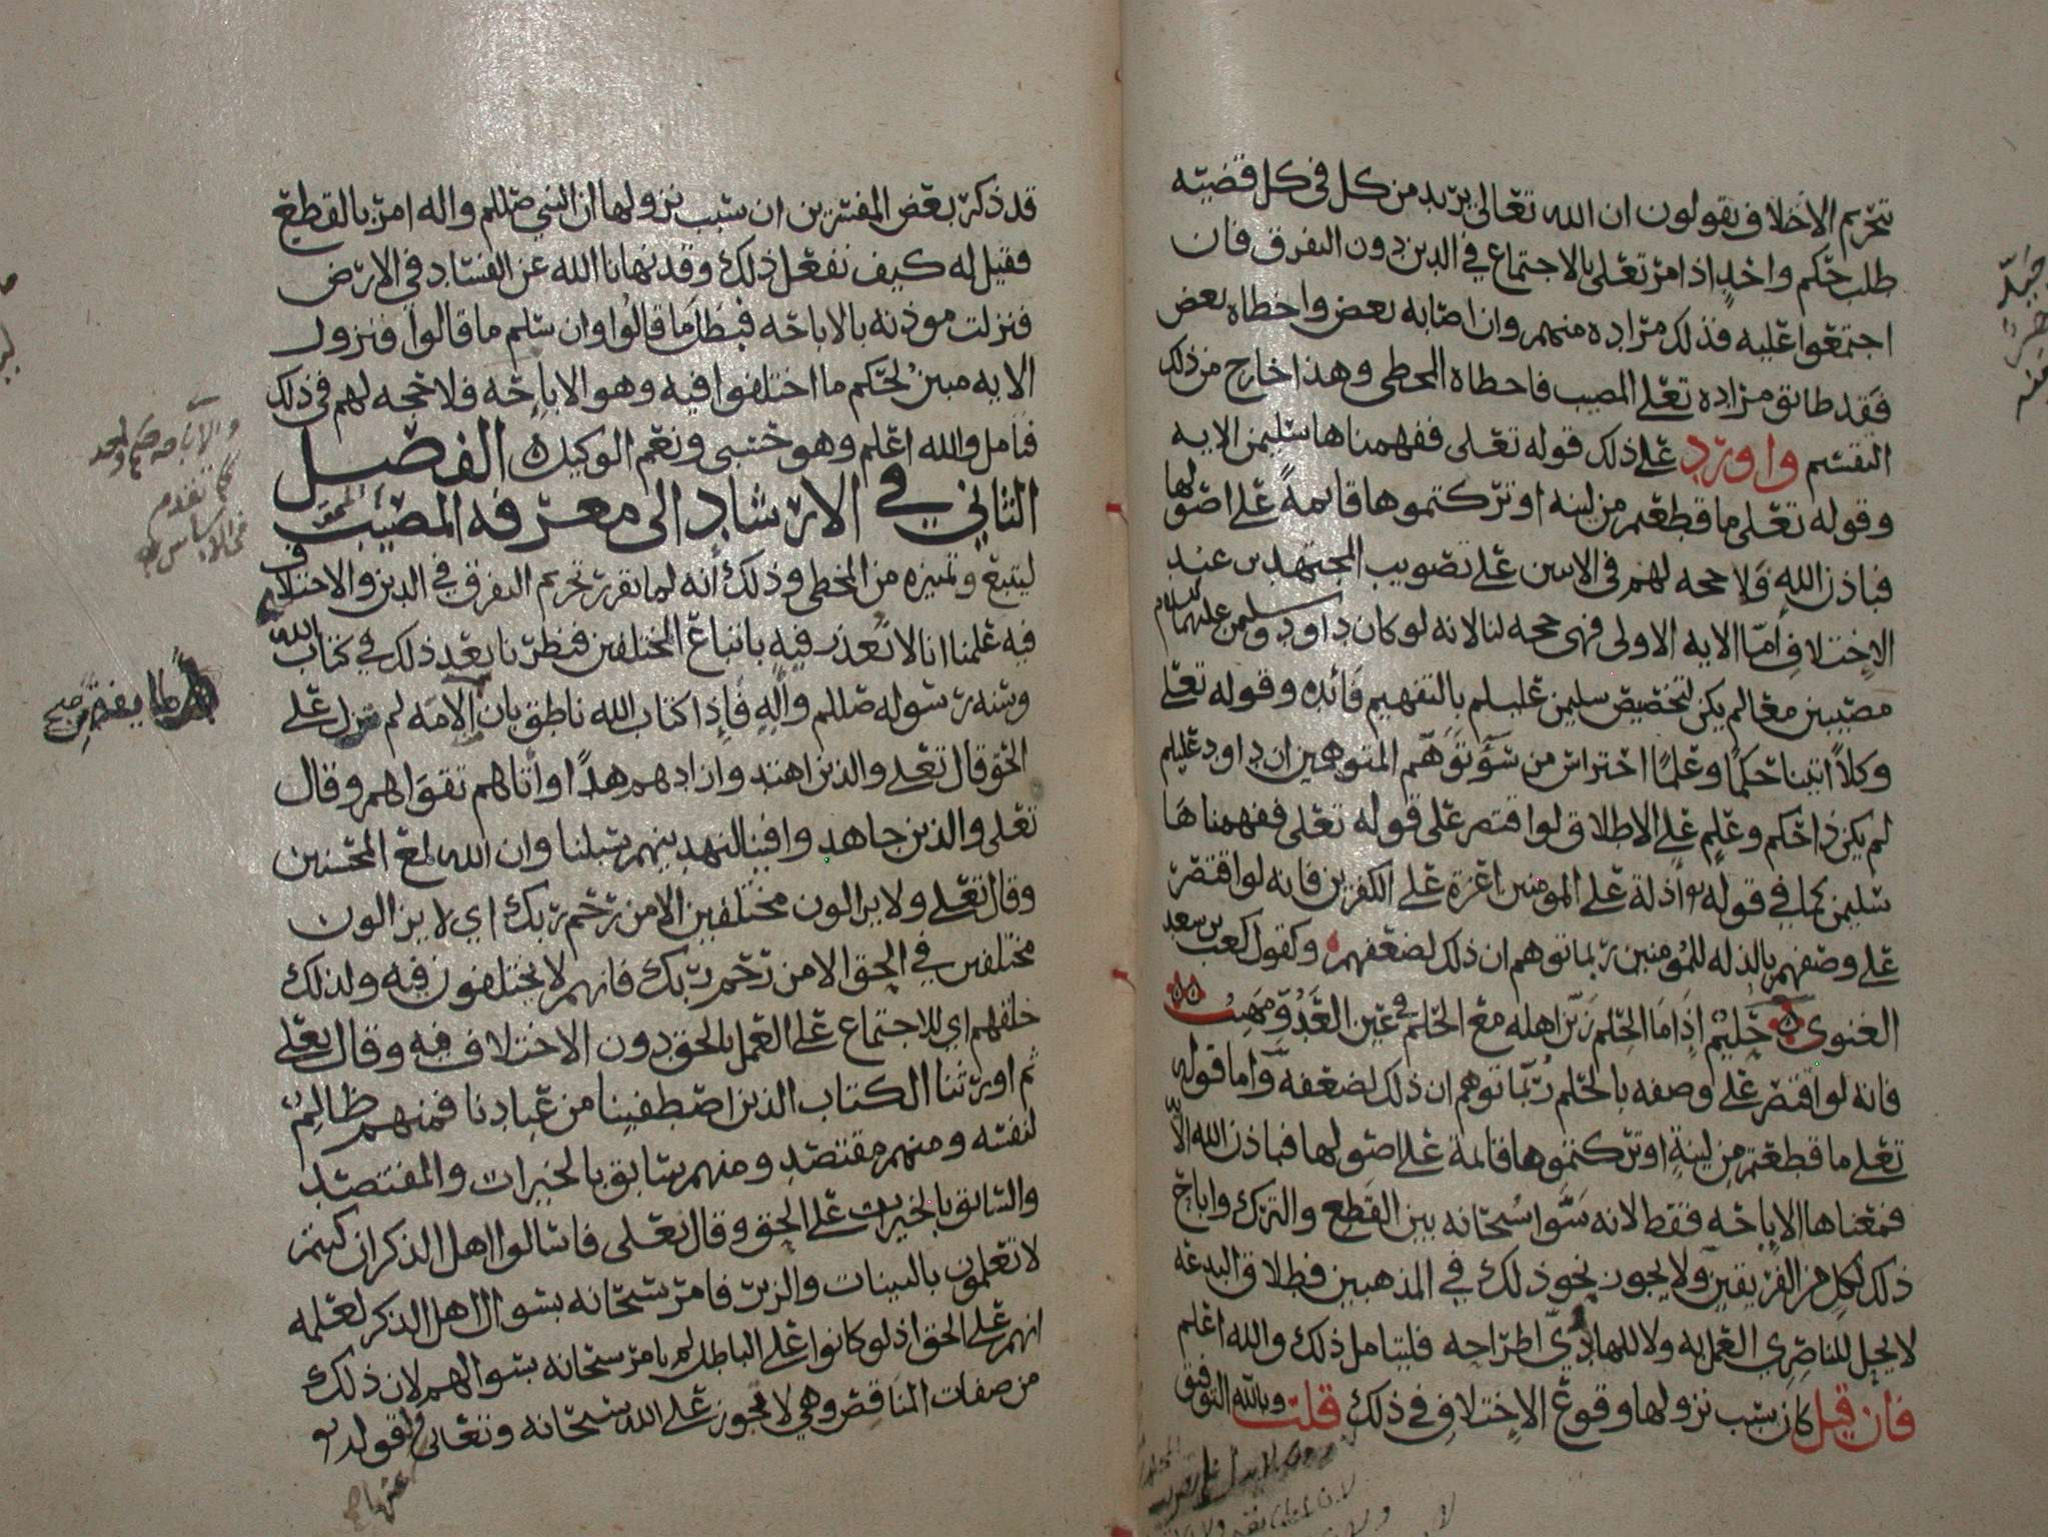 تحريم الاختلاف يقولون ان الله تعالى يريد من كل في كل قضيه
طلب حكم واحد اذ امر تعلى بالاجتماع في الدين دون التفرق فان
اجتمعوا عليه فذلك مراده منهم وان اصابه بعض واخطاه بعض
فقد طابق مراده تعلى المصيب فاخطاه المخطي وهذا خارج من ذلك
التقسيم واورد على ذلك قوله تعلى ففهمناها سليمن الايه
وقوله تعلى ما قطعتم من لينه او تركتموها قايمةً على اصولها
فباذن الله ولا حجه لهم في الاىىين على تصويب المجتهدين عند
الاختلاف امّا الايه الاولى فهى حجه لنا لانه لو كان داود وسليمن عليهما السلام
مصيبين معا لم يكن لتخصيص سليمن عليلم بالتفهيم فائده وقوله تعلى
وكلاً اتينا حكمًا وعلمًا احتراس من سوء توهم المتوهمين ان داود عليلم
لم يكن ذا حكم وعلم على الاطلاق لو اقتصر على قوله تعلى ففهمناها
سليمن كما في قوله تع اذلة على المومنين اعزة على الكفرين فانه لو اقتصر
على وصفهم بالذله للمومنين ربما توهم ان ذلك لضعفهم وكقول كعب بن سعد
الغنوي حليم اذا ما الحلم زين اهله مع الحلم في عين العدو مهيب
فانه لو اقتصر على وصفه بالحلم ربّما توهم ان ذلك لضعفه وامّا قوله
تعلى ما قطعتم من لينة او تركتموها قائمة على اصولها فباذن الله الاّ
فمعناها الاباحه فقط لانه سَوَّا سُبحانه بين القطع والترك واباح
ذلك لكل من الفريقين ولا يجوز نحو ذلك في المذهبين فطلاق البدعه
لا يحل للناصري العمل به ولا للهادي اطراحه فليتامل ذلك والله اعلم
فان قيل كان سبب نزولها وقوع الاختلاف في ذلك قلت وبالله التوفيق
قد ذكر بعض المفسرين ان سبب نزولها ان النبي صللم واله امر بالقطع
فقيل له كيف نفعل ذلك وقد نهانا الله عن الفساد في الارض
فنزلت موذنه بالاباحه فبطل ما قالُوا وان سلم ما قالوا فنزول
الايه مبين لحكم ما اختلفوا فيه وهو الاباحه فلا حجه لهم في ذلك
فتامل والله اعلم وهو حسبي ونعم الوكيل الفصل
الثاني في الارشاد الى معرفة المصيب
ليتبع وتميزه من المخطي وذلك أنه لما تقرر تحريم التفرق في الدين والاختلاف
فيه علمنا انا لا نُعذر فيه باتباع المختلفين فنظرنا بعد ذلك في كتاب الله
وسنه رسوله صللم وآله فإذا كتاب الله ناطق بان الامه لم تزل على
الحق قال تعلى والذين اهتدوا زادهم هدًا واتاهم تقواهم وقال
تعلى والذين جاهدوا فينا لنهدينهم سبلنا وان الله لمع المحسنين
وقال تعلى ولا يزالون مختلفين الا من رحم ربك اي لا يزالون
مختلفين في الحق الا من رحم ربك فانهم لا يختلفون فيه ولذلك
خلقهم اي للاجتماع على العمل بالحق دون الاختلاف فيه وقال تعلى
ثم اورثنا الكتاب الذين اصطفينا من عبادنا فمنهم ظالمٌ
لنفسه ومنهم مقتصد ومنهم سابق بالخيرات والمقتصد
والسابق بالخيرات على الحق وقال تعلى فاسالوا اهل الذكر ان كنتم
لا تعلمون بالبينات والزبر فامر سبحانه بسوال اهل الذكر لعلمه
انهم على الحق اذ لو كانوا على الباطل لم يامر سبحانه بسوالهم لان ذلك
من صفات المناقض وهي لا تجوز على الله سبحانه وتعالى